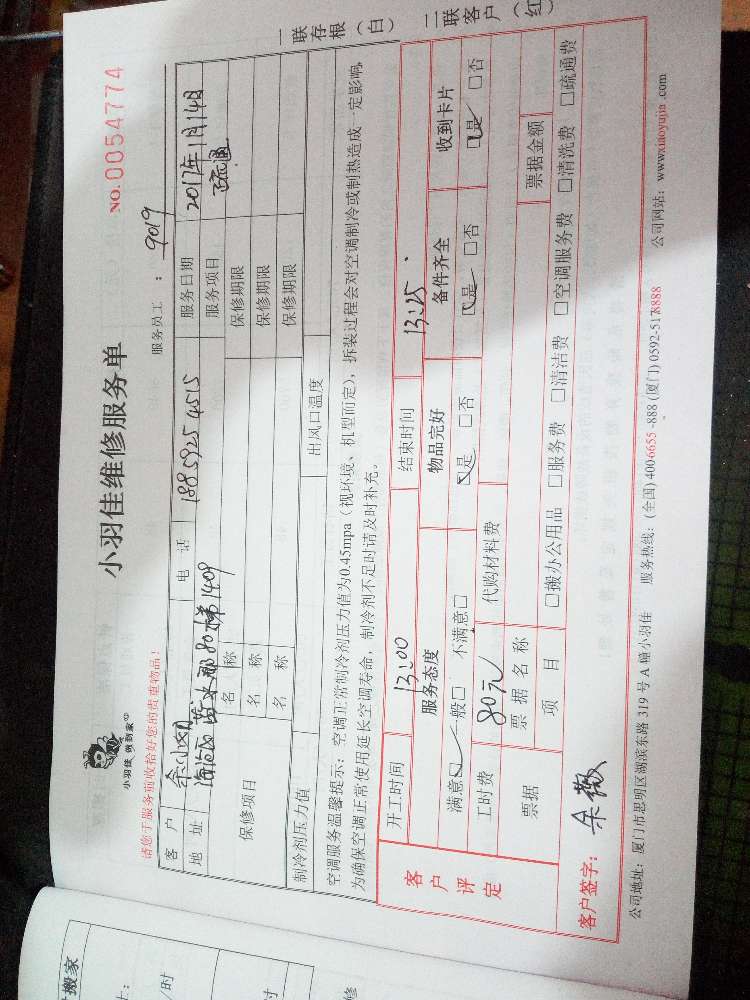 小羽佳维修服务单
NO.0054774
小羽佳 例到家
请您于服务前收拾好您的贵重物品!
服务员工 : 9019
客 户 电 话 188 5925 4515 服务日期 2017年1月14日
地 址 80梯1409 服务项目 疏通
保修项目 名 称 保修期限
名 称 保修期限
名 称 保修期限
制冷剂压力值 出风口温度
空调服务温馨提示:空调正常制冷剂压力值为0.45mpa(视环境、机型而定),拆装过程会对空调制冷或制热造成一定影响,
为确保空调正常使用延长空调寿命,制冷剂不足时请及时补充。
一联存根(白) 二联客户(红)
客户评定
开工时间 13:00 结束时间 13:25
服务态度 物品完好 备件齐全 收到卡片
满意☑ 一般□ 不满意□ ☑是 □否 ☑是 □否 ☑是 □否
工时费 80元 代购材料费
票据 票据名称 票据金额
项 目 □搬办公用品 □服务费 □清洁费 □空调服务费 □清洗费 □疏通费
客户签字: 余薇
公司地址:厦门市思明区湖滨东路 319 号 A 幢小羽佳 服务热线:(全国) 400-6655-888 (厦门) 0592-5178888 公司网站:www.xiaoyujia.com
搬家
/时
时
修